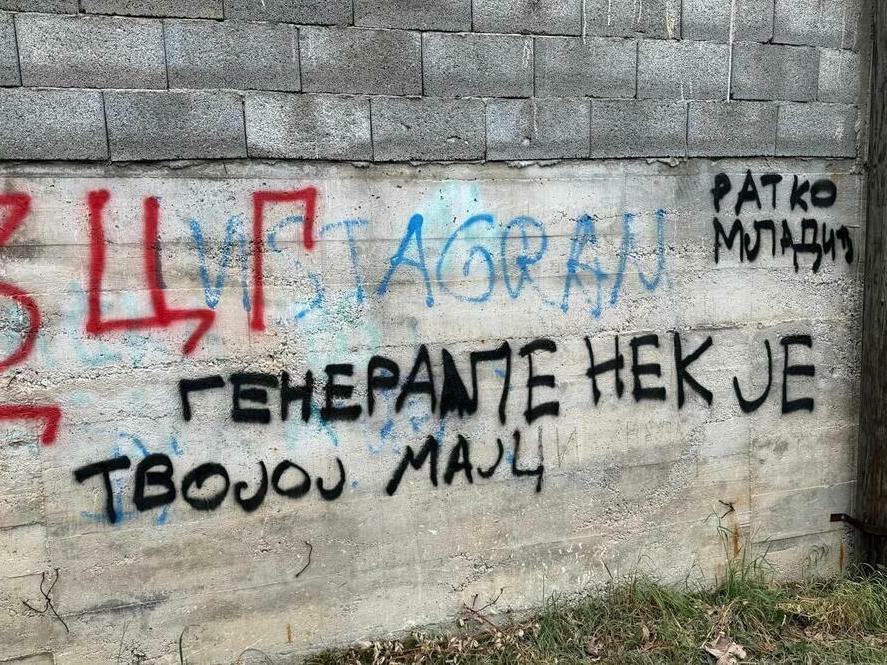 ЦГ
ИSTAGRAN
РАТКО
МЛАДИЋ
ГЕНЕРАЛЕ НЕК ЈЕ
ТВОЈОЈ МАЈЦИ